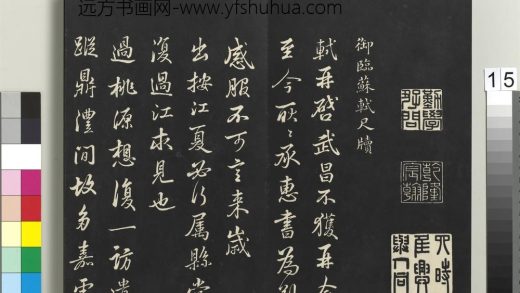 远方书画网-www.yfshuhua.com
15
勤學好問
乾隆宸翰
御臨蘇軾尺牘
軾再啓武昌不獲再
至今耿耿承惠書為
感服不可言来歲
出按江夏必行属縣
復過江求見也
過桃源想復一訪
蹤鼎澧間故多嘉